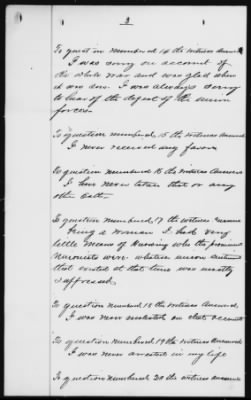 2
To question numbered 14 the witness answers
I was sorry on account of
the whole war and was glad when
it was over. I was always sorry
to hear of the defeat of the union
forces.
To question numbered 15 the witness answers
I never received any favors
To question numbered 16 the witness answers
I have never taken that or any
other oath.
To question numbered 17 the witness answers
Being a woman I had very
little means of knowing who the prominent
Unionists were whatever union sentiment
that existed at that time was mostly
suppressed.
To question numbered 18 the witness answers
I was never molested on that account
To question numbered 19 the witness answers
I was never arrested in my life
To question numbered 20 the witness answers